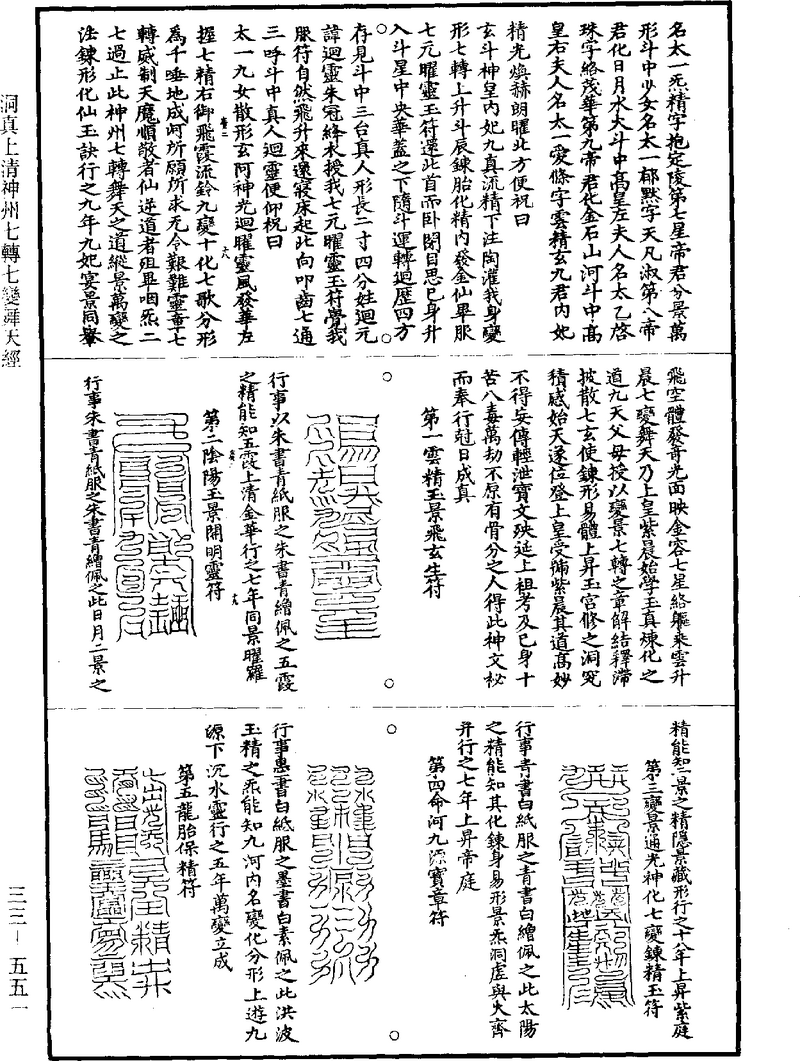 洞真上清神州七轉七變舞天經
三三—五五一
名太一炁精字抱定陵第七星帝君分景萬
形斗中少女名太一郁默字天凡淑第八帝
君化日月水火斗中高皇左夫人名太乙啓
珠字絡茂華第九帝君化金石山河斗中高
皇右夫人名太一愛條字雲精玄九君內妃
精光煥赫朗曜此方便祝曰
玄斗神皇內妃九真流精下注陶灌我身變
形七轉上升斗辰鍊胎化精內發金仙畢服
七元曜靈玉符還此首而卧閉目思己身升
入斗星中央華蓋之下隨斗運轉迴歷四方
存見斗中三台真人形長二寸四分姓迴元
諱迴靈朱冠絳衣授我七元曜靈玉符覺我
服符自然飛升來還寢床起北向叩齒七通
三呼斗中真人迴靈便仰祝曰
太一九女散形玄阿神光迴曜靈風發華左
握七精右御飛霞流鈴九變十化七歌分形
為千唾地成河所願所求无令艱難靈童七
轉威制天魔順散者仙逆道者殂畢咽炁二
七過止此神州七轉舞天之道縱景萬變之
法鍊形化仙玉訣行之九年九妃宴景同轡
飛空體發奇光面映金容七星絡軀乘雲升
晨七變舞天乃上皇紫晨始學玉真煉化之
道九天父母授以變景七轉之章解結釋滯
披散七玄使鍊形易體上昇玉宮修之洞究
積感始天遂位登上皇受號紫晨其道高妙
不得妄傳輕泄寶文殃延上祖考及己身十
苦八毒萬劫不原有骨分之人得此神文祕
而奉行剋日成真
第一雲精玉景飛玄生符
行事以朱書青紙服之朱書青繒佩之五霞
之精能知五霞上清金華行之七年同景曜羅
第二陰陽玉景開明靈符
行事朱書青紙服之朱書青繒佩之此日月二景之
精能知二景之精隱景藏形行之十八年上昇紫庭
第三變景通光神化七變鍊精玉符
行事青書白紙服之青書白繒佩之此太陽
之精能知其化鍊身易形景炁洞虛與火齊
并行之七年上昇帝庭
第四命河九源寶章符
行事墨書白紙服之墨書白素佩之此洪波
玉精之炁能知九河內名變化分形上遊九
源下沉水靈行之五年萬變立成
第五龍胎保精符